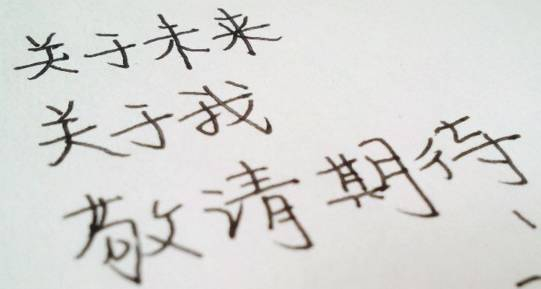 关于未来
关于我
敬请期待